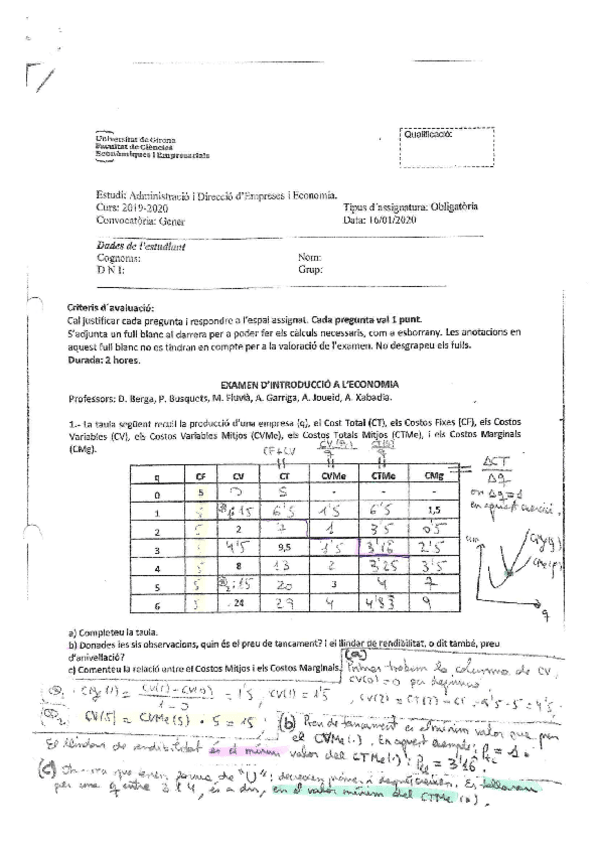 Universitat de Girona
Facultat de Ciències
Econòmiques i Empresarials
Qualificació:
Estudi: Administració i Direcció d'Empreses i Economia.
Curs: 2019-2020 Tipus d'assignatura: Obligatòria
Convocatòria: Gener Data: 16/01/2020
Dades de l'estudiant
Cognoms: Nom:
D N I: Grup:
Criteris d'avaluació:
Cal justificar cada pregunta i respondre a l'espai assignat. Cada pregunta val 1 punt.
S'adjunta un full blanc al darrera per a poder fer els càlculs necessaris, com a esborrany. Les anotacions en
aquest full blanc no es tindran en compte per a la valoració de l'examen. No desgrapeu els fulls.
Durada: 2 hores.
EXAMEN D'INTRODUCCIÓ A L'ECONOMIA
Professors: D. Berga, P. Busquets, M. Fluvià, A. Garriga, A. Joueid, A. Xabadia.
1.- La taula següent recull la producció d'una empresa (q), el Cost Total (CT), els Costos Fixes (CF), els Costos
Variables (CV), els Costos Variables Mitjos (CVMe), els Costos Totals Mitjos (CTMe), i els Costos Marginals
(CMg).
CF+CV
q CF CV CT CVMe CTMe CMg
0 5 0 5 - - -
1 5 1'5 6'5 1'5 6'5 1,5
2 5 2 7 1 3'5 0'5
3 5 4'5 9,5 1'5 3'16 2'5
4 5 8 13 2 3'25 3'5
5 5 15 20 3 4 7
6 5 24 29 4 4'83 9
ΔCT
Δq
on Δq=1
en aquest exercici.
q
a) Completeu la taula.
b) Donades les sis observacions, quin és el preu de tancament? i el llindar de rendibilitat, o dit també, preu
d'anivellació?
c) Comenteu la relació entre el Costos Mitjos i els Costos Marginals.
(a)
Primer trobem la columna de CV,
CV(0)=0 per
CMg(1) = CV(1)-CV(0) / 1-0 = 1'5, CV(1)=1'5
CV(5) = CVMe(5) · 5 = 15
(b) Preu de tancament és el mínim valor que pren
el CVMe(.). En aquest exemple: = 1.
El llindar de rendibilitat és el mínim valor del CTMe(.): = 3'16.
(c) tenen forma de "U":
per una q entre 3 i 4, és a dir, en el valor mínim del CTMe(.).